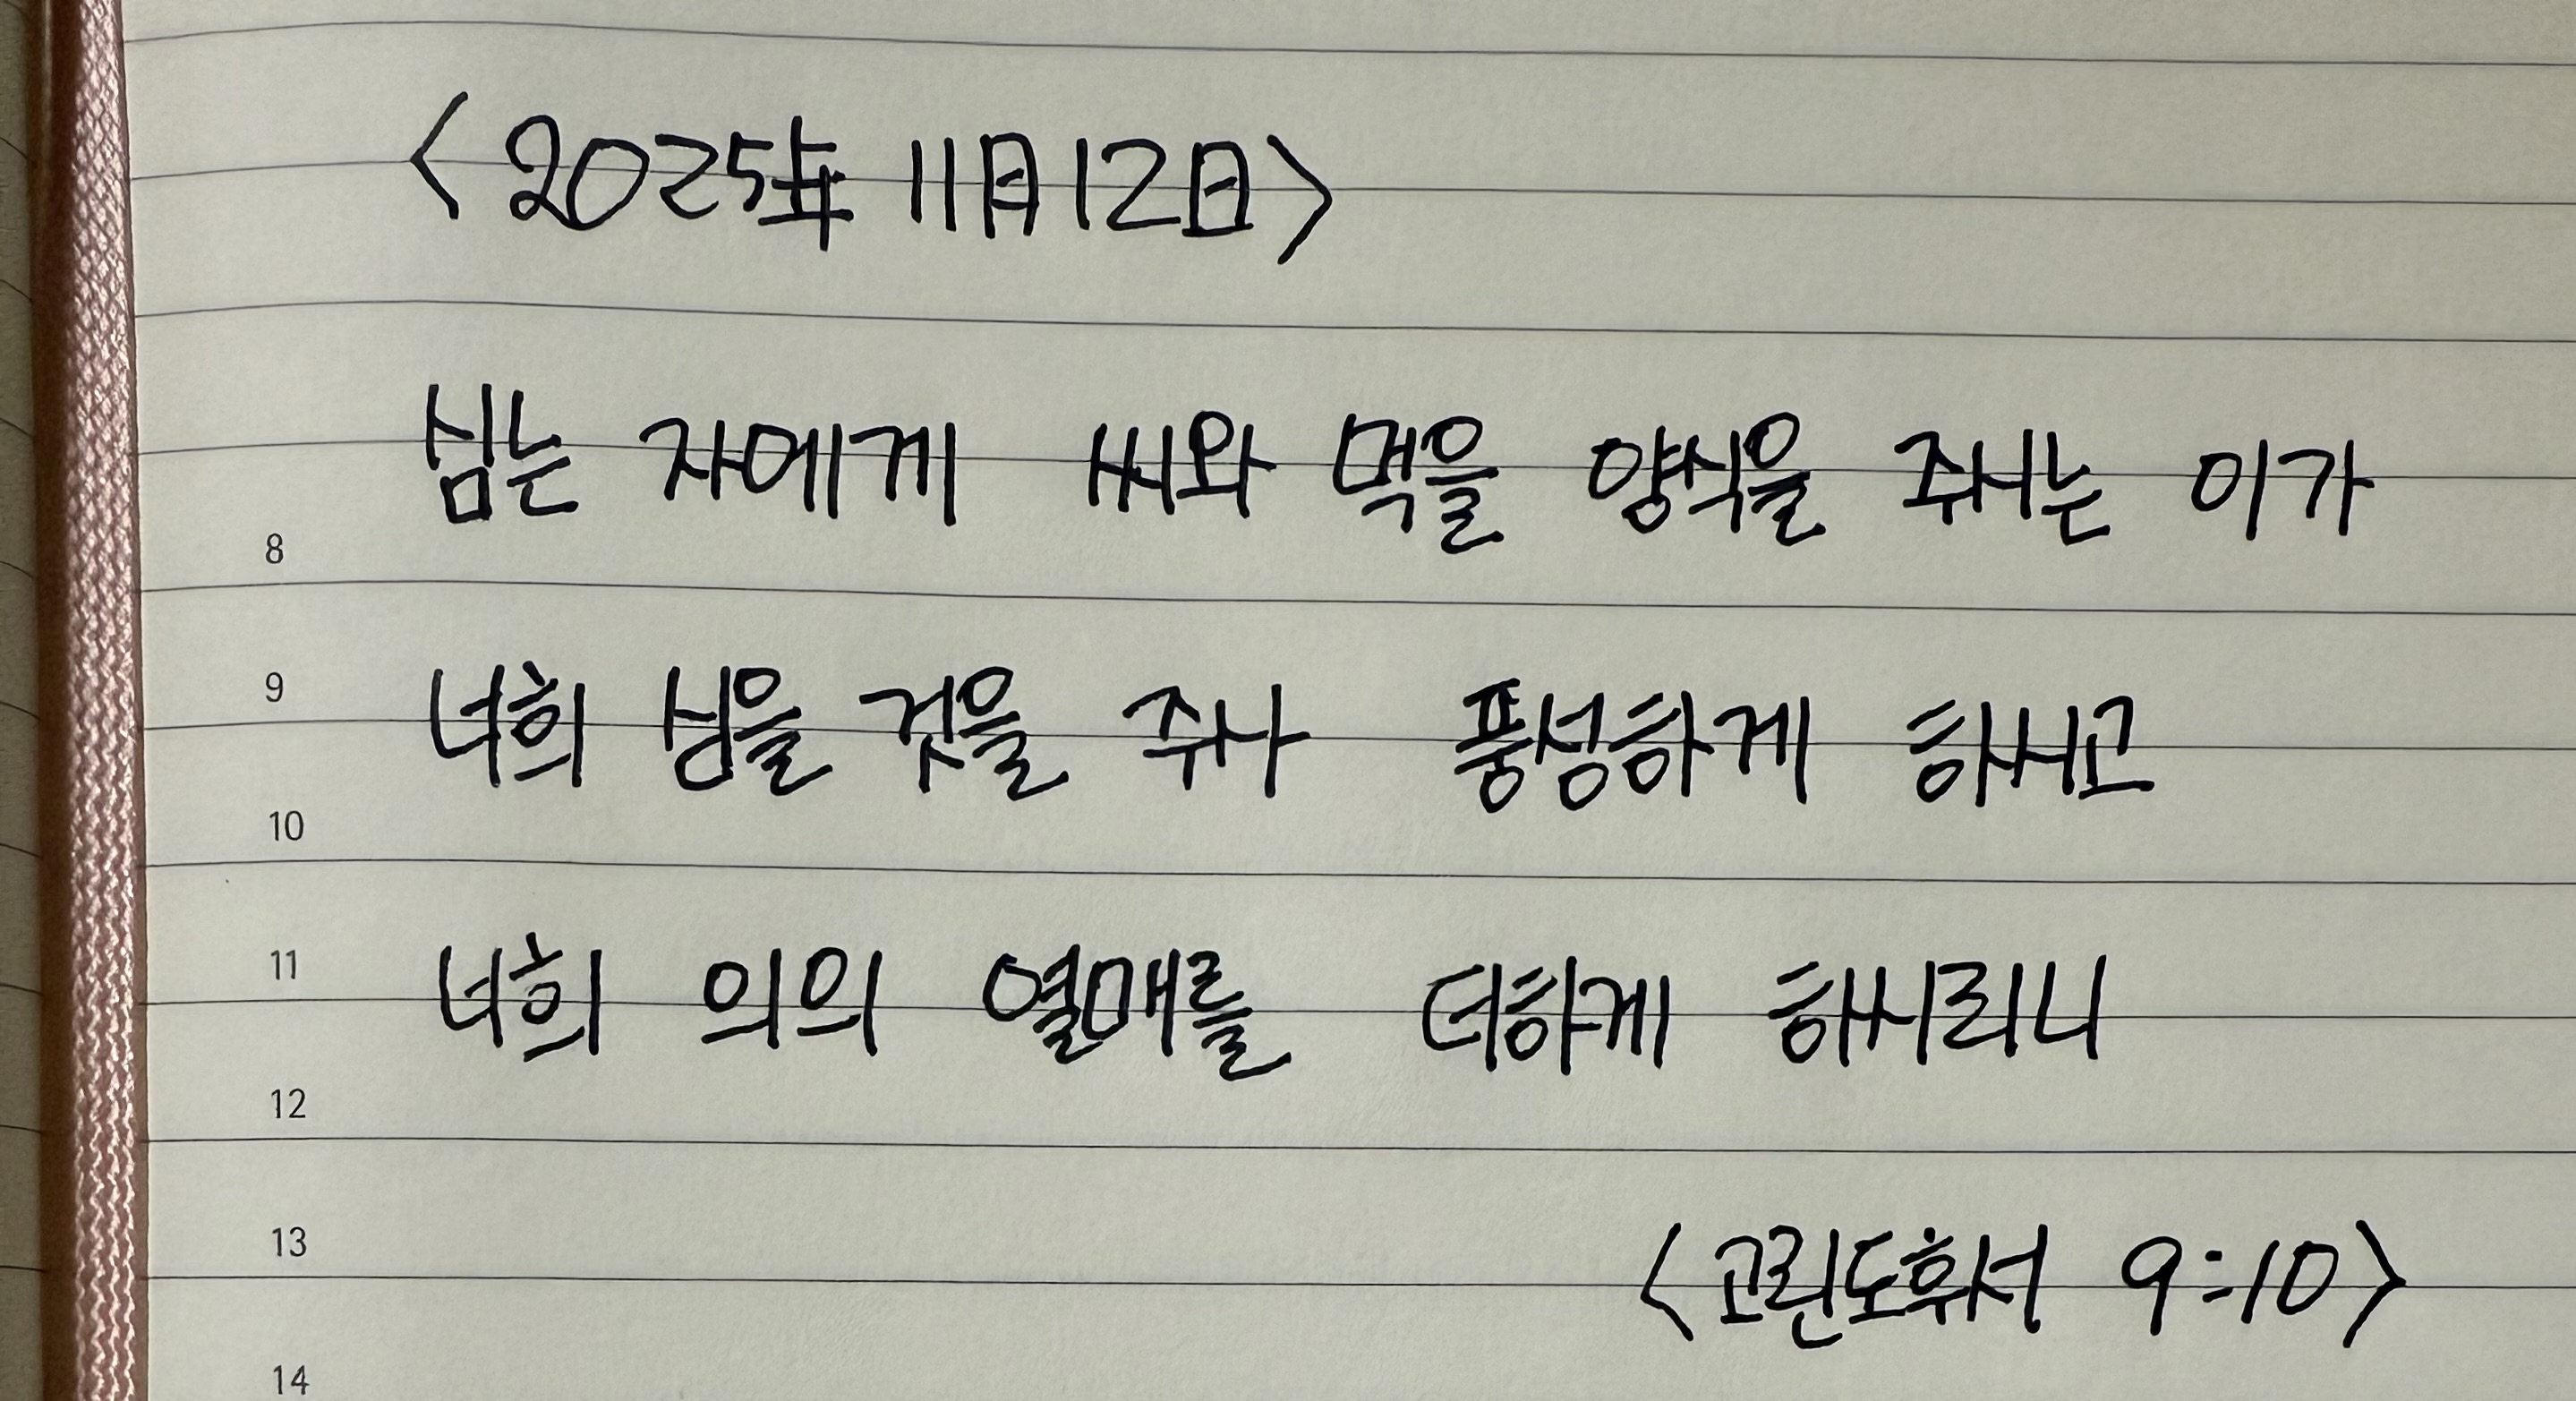 <2025年 11月12日>
심는 자에게 씨와 먹을 양식을 주시는 이가
8
9
너희 심을 것을 주사 풍성하게 하시고
10
11
너희 의의 열매를 더하게 하시리니
12
13
<고린도후서 9:10>
14